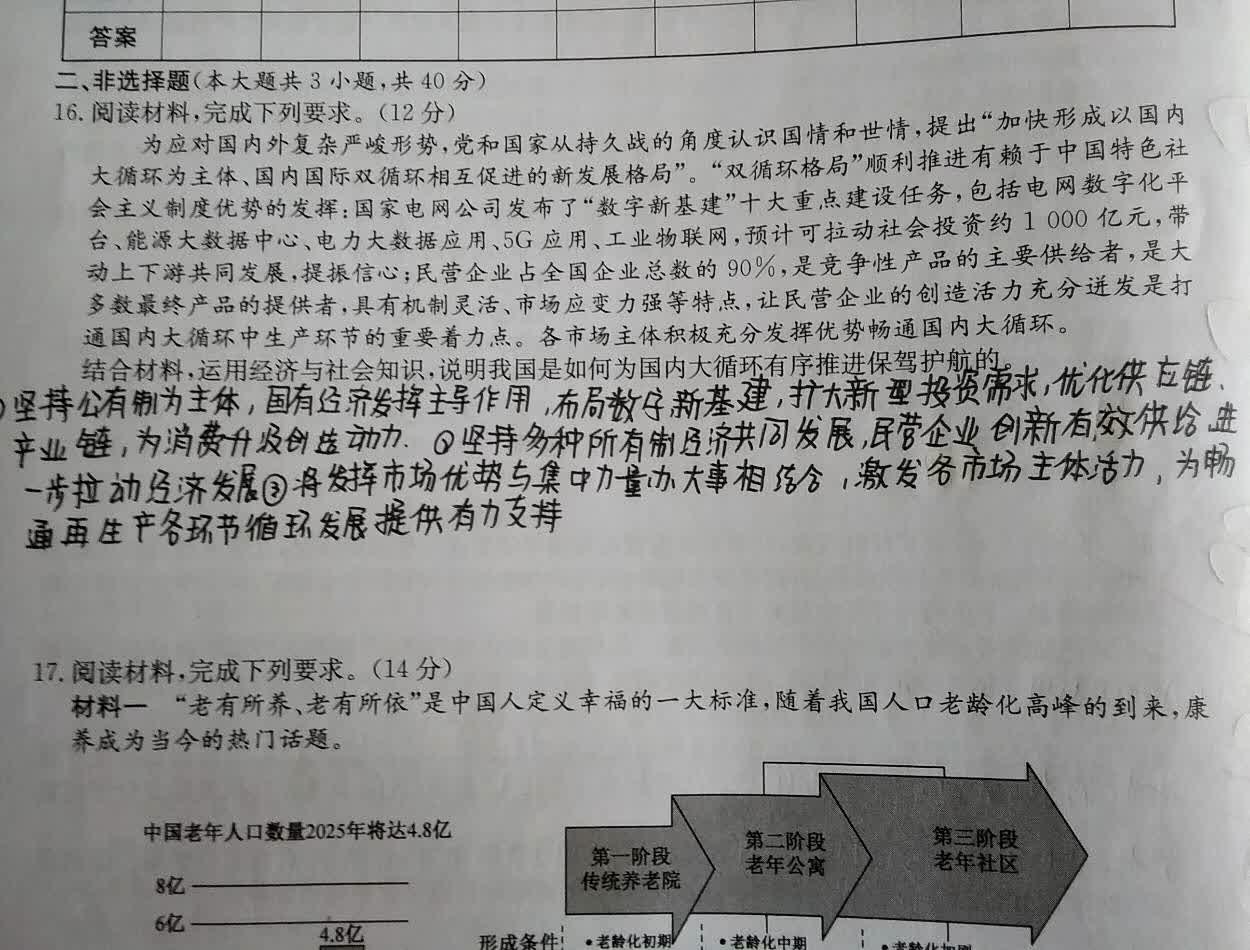 答案
二、非选择题(本大题共 3 小题,共 40 分)
16. 阅读材料,完成下列要求。(12 分)
为应对国内外复杂严峻形势,党和国家从持久战的角度认识国情和世情,提出“加快形成以国内
大循环为主体、国内国际双循环相互促进的新发展格局”。“双循环格局”顺利推进有赖于中国特色社
会主义制度优势的发挥:国家电网公司发布了“数字新基建”十大重点建设任务,包括电网数字化平
台、能源大数据中心、电力大数据应用、5G 应用、工业物联网,预计可拉动社会投资约 1 000 亿元,带
动上下游共同发展,提振信心;民营企业占全国企业总数的 90%,是竞争性产品的主要供给者,是大
多数最终产品的提供者,具有机制灵活、市场应变力强等特点,让民营企业的创造活力充分迸发是打
通国内大循环中生产环节的重要着力点。各市场主体积极充分发挥优势畅通国内大循环。
结合材料,运用经济与社会知识,说明我国是如何为国内大循环有序推进保驾护航的。
坚持公有制为主体,国有经济发挥主导作用,布局数字新基建,扩大新型投资需求,优化供应链、
产业链,为消费升级创造动力. ②坚持多种所有制经济共同发展,民营企业创新有效供给进
一步拉动经济发展③将发挥市场优势与集中力量办大事相结合,激发各市场主体活力,为畅
通再生产各环节循环发展提供有力支持
17. 阅读材料,完成下列要求。(14 分)
材料一 “老有所养、老有所依”是中国人定义幸福的一大标准,随着我国人口老龄化高峰的到来,康
养成为当今的热门话题。
中国老年人口数量2025年将达4.8亿
8亿
6亿
4.8亿
第一阶段
传统养老院
第二阶段
老年公寓
第三阶段
老年社区
形成条件
•老龄化初期
•老龄化中期